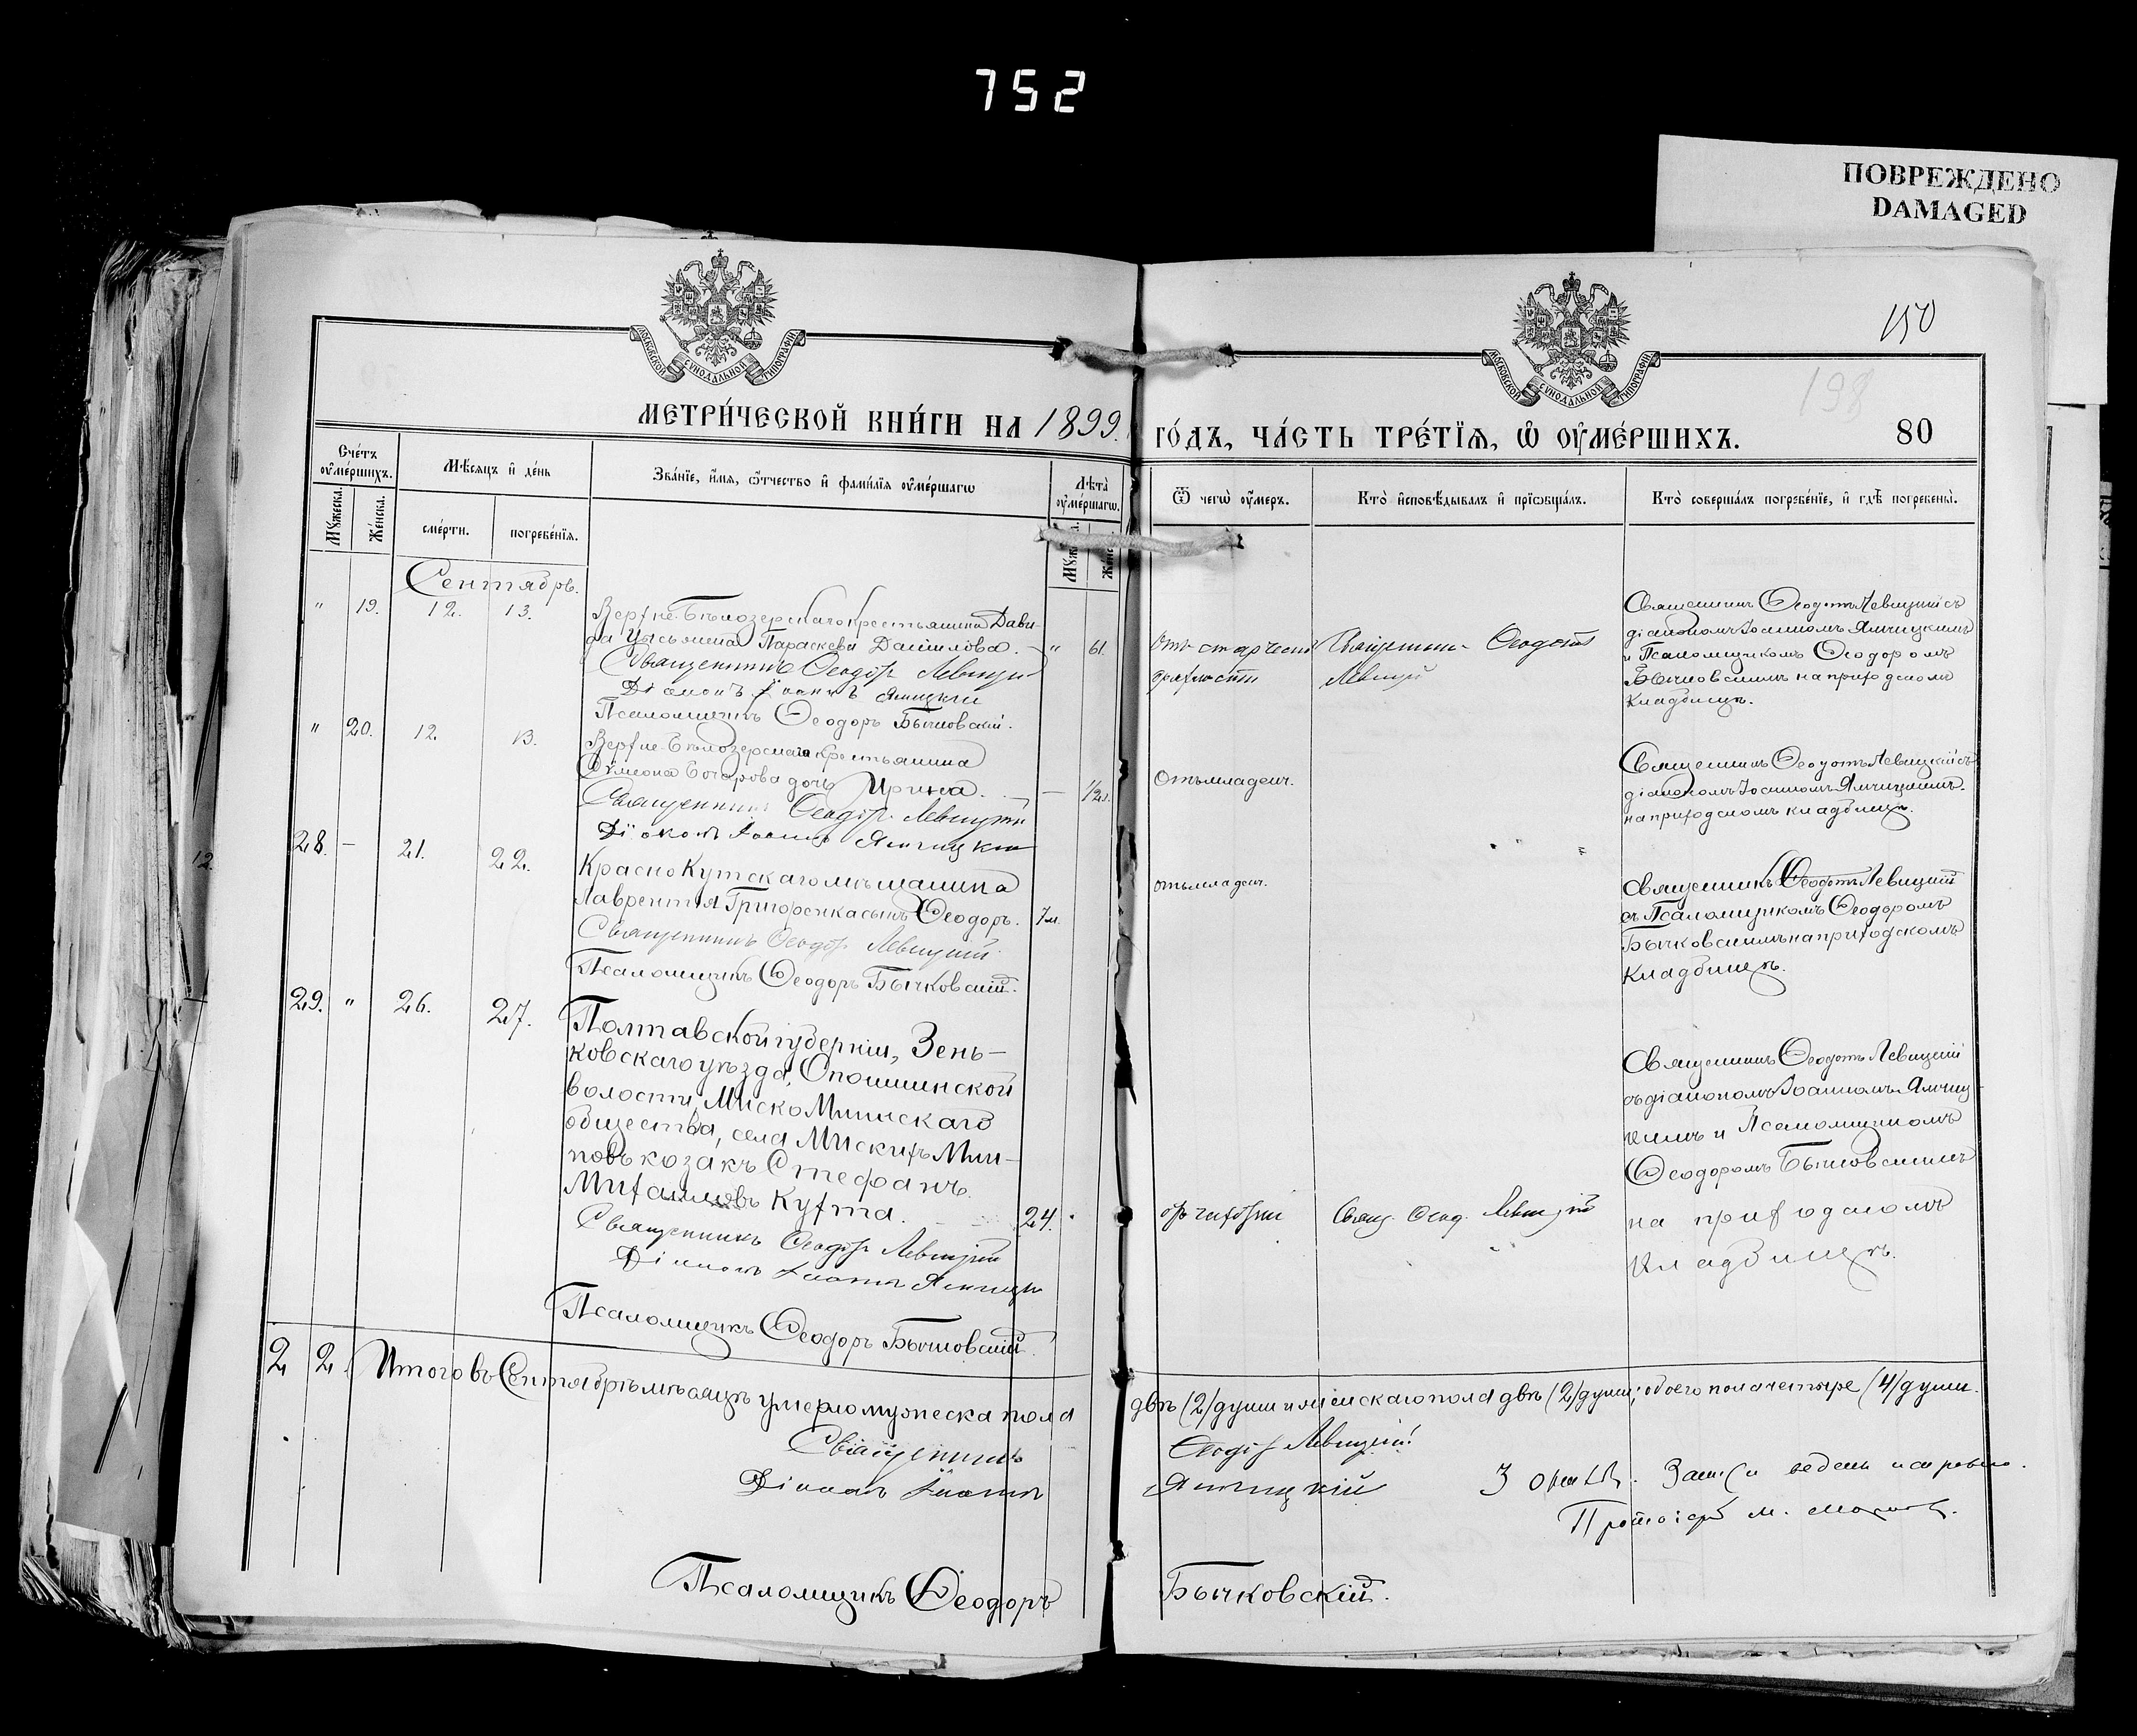 752
ПОВРЕЖДЕНО
DAMAGED
МОСКОВСКОЙ СѴНОДАЛЬНОЙ ТИПОГРАФІИ
МОСКОВСКОЙ СѴНОДАЛЬНОЙ ТИПОГРАФІИ
150
198
МЕТРИ́ЧЕСКОЙ КНИ́ГИ НА 1899.
ГО́ДЪ, ЧА́СТЬ ТРЕ́ТІѦ, Ѡ ОУМЕ́РШИХЪ.
80
Сче́тъ оумершихъ.
Мѣсяцъ и день
Званіе, имя, ѻтчество и фамилія оумершагѡ
Лѣта оумершагѡ.
Мꙋжеска.
Женска.
смерти.
погребенія.
Мꙋж
Женс
Ѿ чегѡ оумеръ.
Кто исповѣдывалъ и пріѡбщалъ.
Кто совершалъ погребеніе, и гдѣ погребены.
Сентябрь.
" 19. 12. 13.
Верхне-Бѣлозерскаго крестьянина Дави-
да жена Параскева Данилова. — " 61.
Священникъ Ѳеодотъ Левицкій
Діаконъ Іоаннъ Ямчицкій
Псаломщикъ Ѳеодоръ Бычковскій.
Отъ старческой
дряхлости
Священникъ Ѳеодотъ
Левицкій
Священникъ Ѳеодотъ Левицкій съ
діакономъ Іоанномъ Ямчицкимъ
и Псаломщикомъ Ѳеодоромъ
Бычковскимъ на приходскомъ
кладбищѣ.
" 20. 12. 13.
Верхне-Бѣлозерскаго крестьянина
Сѵмеона Бочарова дочь Ирина. — — 1/2
Священникъ Ѳеодотъ Левицкій
Діаконъ Іоаннъ Ямчицкій
Отъ младенч.
Священникъ Ѳеодотъ Левицкій съ
діакономъ Іоанномъ Ямчицкимъ.
на приходскомъ кладбищѣ.
28. — 21. 22.
Краснокутскаго мѣщанина
Лаврентія Григоренка сынъ Ѳеодоръ. 7м.
Священникъ Ѳеодотъ Левицкій
Псаломщикъ Ѳеодоръ Бычковскій.
отъ младенч.
Священникъ Ѳеодотъ Левицкій
съ Псаломщикомъ Ѳеодоромъ
Бычковскимъ на приходскомъ
кладбищѣ.
29. " 26. 27.
Полтавской губерніи, Зень-
ковскаго уѣзда, Опошнянской
волости, Миско Млинскаго
общества, села Мискихъ Мли-
новъ козакъ Стефанъ
Михаиловъ Кухта. 24.
Священникъ Ѳеодотъ Левицкій
Діаконъ Іоаннъ Ямчицкій
Псаломщикъ Ѳеодоръ Бычковскій.
отъ чахотки
Свящ. Ѳеод. Левицкій
Священникъ Ѳеодотъ Левицкій
съ діакономъ Іоанномъ Ямчиц-
кимъ и Псаломщикомъ
Ѳеодоромъ Бычковскимъ
на приходскомъ
кладбищѣ.
2 2. Итого въ Сентябрѣ мѣсяцѣ умерло мужеска пола
двѣ (2) души и женскаго пола двѣ (2) души; обоего пола четыре (4) души.
Священникъ
Ѳеодотъ Левицкій
Діаконъ Іоаннъ
Ямчицкій
3 октяб. Запись ведена исправно.
Протоіерей М.
Псаломщикъ Ѳеодоръ
Бычковскій.